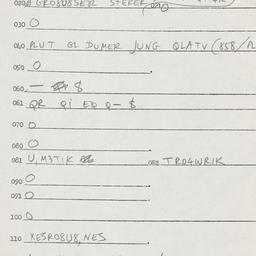 020 A GROBUBSER STEKER, 020
030 O
040 PLUT GL DUMER JUNG QLATV (858/PL
050 O
060 — $
061 QR QI EQ Q — $
070 O
080 O
081 U, M3TIK 082 TRO4WRIK
090 O
091 O
100 O
110 XESROBUB, NES